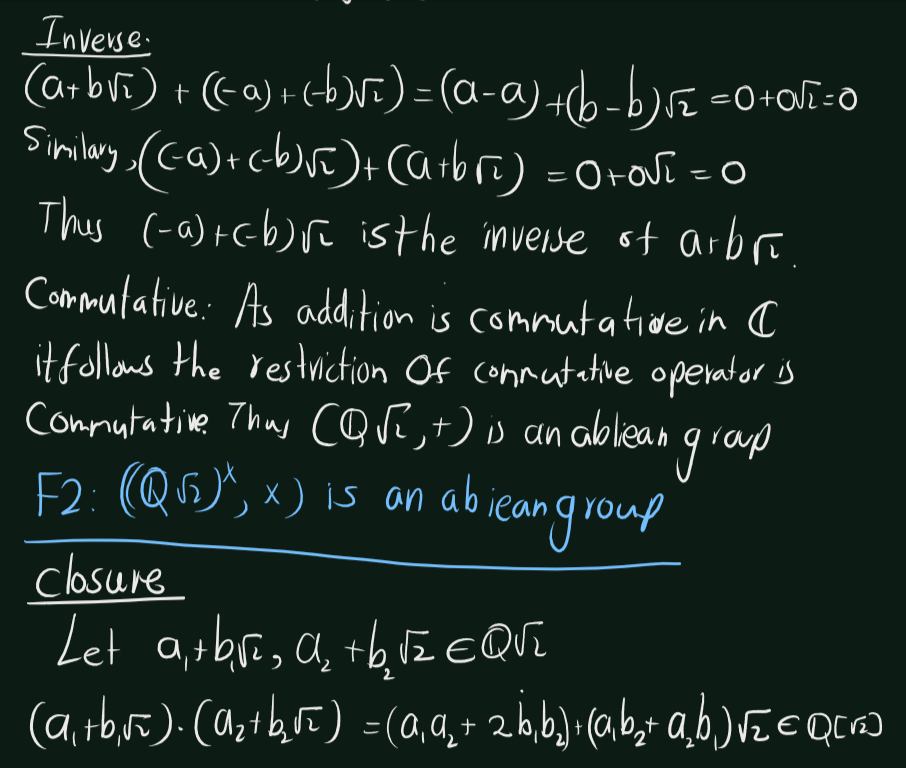 Inverse.
(a+b√2) + ((-a)+(-b)√2) = (a-a)+(b-b)√2 = 0+0√2=0
Similary, ((-a)+(-b)√2)+(a+b√2) = 0+0√2 = 0
Thus (-a)+(-b)√2 is the inverse of a+b√2.
Commutative: As addition is commutative in ℂ
it follows the restriction of commutative operator is
Commutative. Thus (ℚ√2,+) is an abliean group
F2: ((ℚ√2)ˣ, ×) is an abieangroup
closure
Let a₁+b₁√2, a₂+b₂√2 ∈ ℚ√2
(a₁+b₁√2)·(a₂+b₂√2) = (a₁a₂+2b₁b₂)+(a₁b₂+a₂b₁)√2 ∈ ℚ[√2]